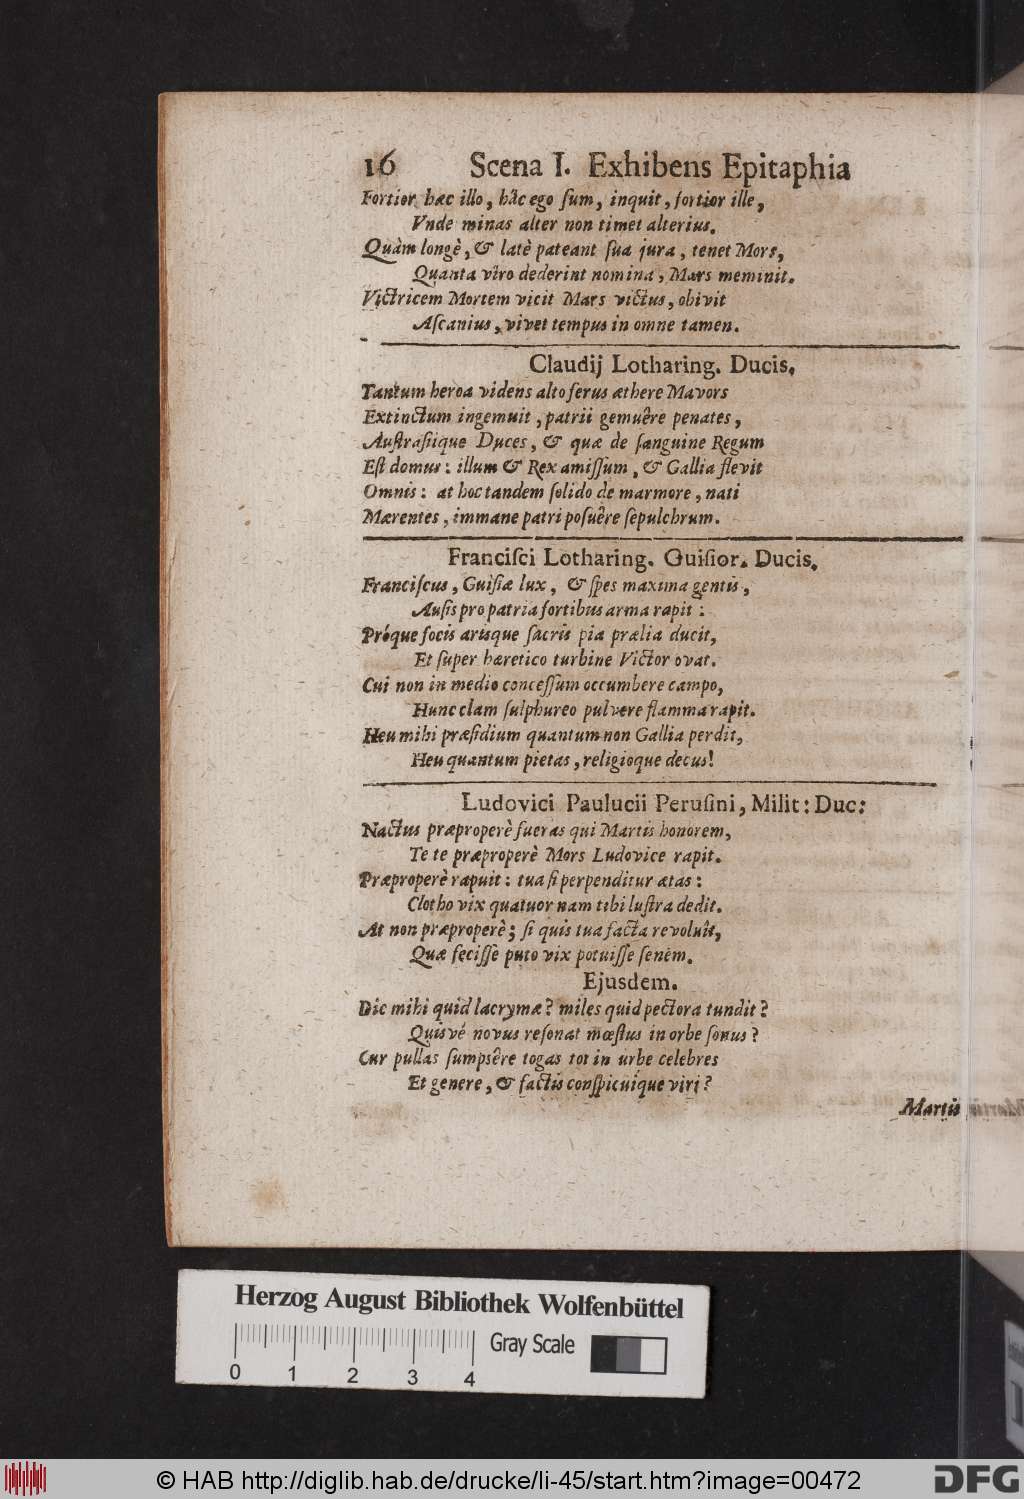 16 Scena I. Exhibens Epitaphia
Fortior hæc illo, hâc ego ſum, inquit, fortior ille,
Vnde minas alter non timet alterius.
Quàm longè, & latè pateant ſua jura, tenet Mors,
Quanta viro dederint nomina, Mars meminit.
Victricem Mortem vicit Mars victus, obivit
Aſcanius, vivet tempus in omne tamen.
Claudij Lotharing. Ducis.
Tantum heroa videns alto ferus æthere Mavors
Extinctum ingemuit, patrii gemuêre penates,
Auſtraſiique Duces, & quæ de ſanguine Regum
Eſt domus: illum & Rex amiſſum, & Gallia flevit
Omnis: at hoc tandem ſolido de marmore, nati
Mærentes, immane patri poſuêre ſepulchrum.
Franciſci Lotharing. Guiſior. Ducis.
Franciſcus, Guiſiæ lux, & ſpes maxima gentis,
Auſis pro patria fortibus arma rapit:
Próque focis arisque ſacris pia prælia ducit,
Et ſuper hæretico turbine Victor ovat.
Cui non in medio conceſſum occumbere campo,
Hunc clam ſulphureo pulvere flamma rapit.
Heu mihi præſidium quantum non Gallia perdit,
Heu quantum pietas, religioque decus!
Ludovici Paulucii Peruſini, Milit: Duc:
Nactus præproperè fueras qui Martis honorem,
Te te præproperè Mors Ludovice rapit.
Præproperè rapuit: tua ſi perpenditur ætas:
Clotho vix quatuor nam tibi luſtra dedit.
At non præproperè; ſi quis tua facta revoluît,
Quæ feciſſe puto vix potuiſſe ſenem.
Ejusdem.
Dic mihi quid lacrymæ? miles quid pectora tundit?
Quisvé novus reſonat mœſtus in orbe ſonus?
Cur pullas ſumpsêre togas tot in urbe celebres
Et genere, & factis conſpicuique viri?
Martis
Herzog August Bibliothek Wolfenbüttel
Gray Scale
0 1 2 3 4
© HAB http://diglib.hab.de/drucke/li-45/start.htm?image=00472
DFG